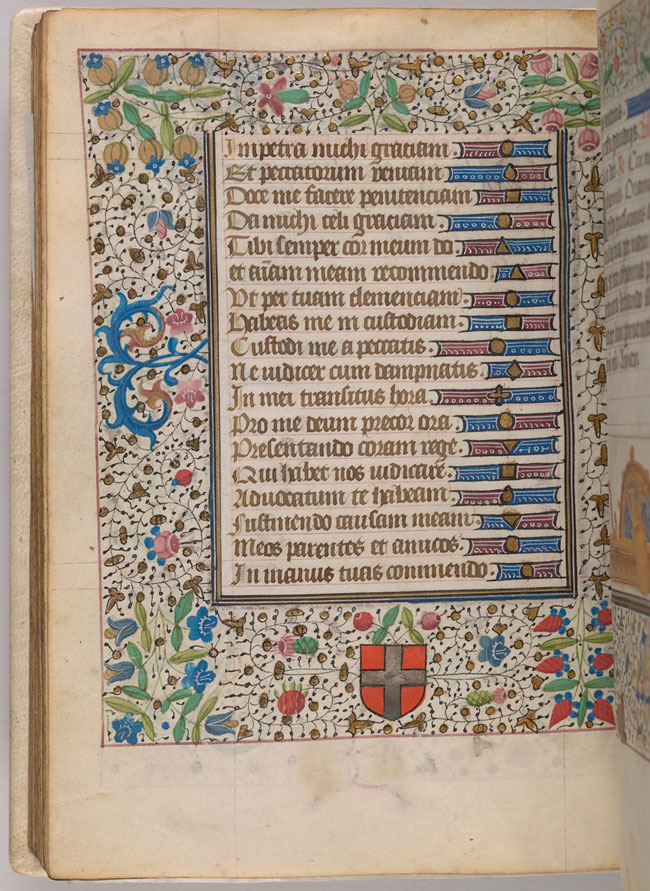 Impetra michi graciam
Et peccatorum veniam
Doce me facere penitenciam
Da michi celi graciam.
Tibi semper cor meum do
et aīam meam recommendo
Vt per tuam clemenciam
Habeas me in custodiam.
Custodi me a peccatis.
Ne iudicer cum dampnatis
In mei transitus hora
Pro me deum precor ora.
Presentando coram rege.
Qui habet nos iudicare
Aduocatum te habeam
Sustinendo causam meam
Meos parentes et amicos.
In manus tuas commendo